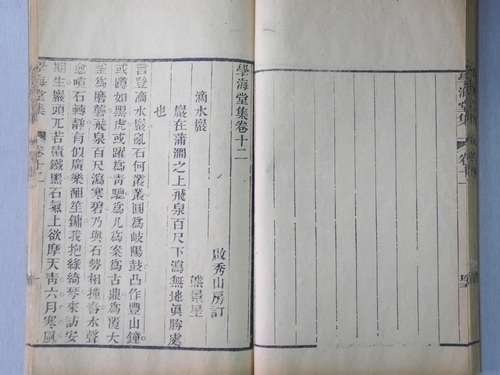 學海堂集卷十二
啟秀山房訂
滴水巖
熊景星
巖在蒲澗之上飛泉百尺下瀉無地眞勝處
也
言登滴水巖亂石何叢叢圓爲岐陽鼓凸作豐山鐘
或蹲如黑虎或躍爲靑驄爲几爲案爲古鼎爲覆大
釜爲磨礱飛泉百尺瀉寒碧乃與石勢相撞舂水聲
愈喧石轉靜有似廣樂酣笙鏞我抱綠綺琴來訪安
期生巖頭兀苔積鐵黑石氣上欲摩天靑六月寒風
學海堂集
卷十二
學海堂集
卷十一